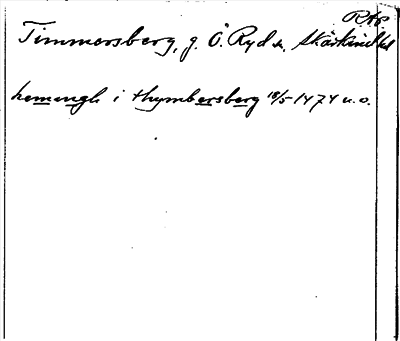 RAP
Timmersberg, g. Ö. Ryd s. Skärkind hd
hemengh i thymbersberg 18/5 1474 u. o.